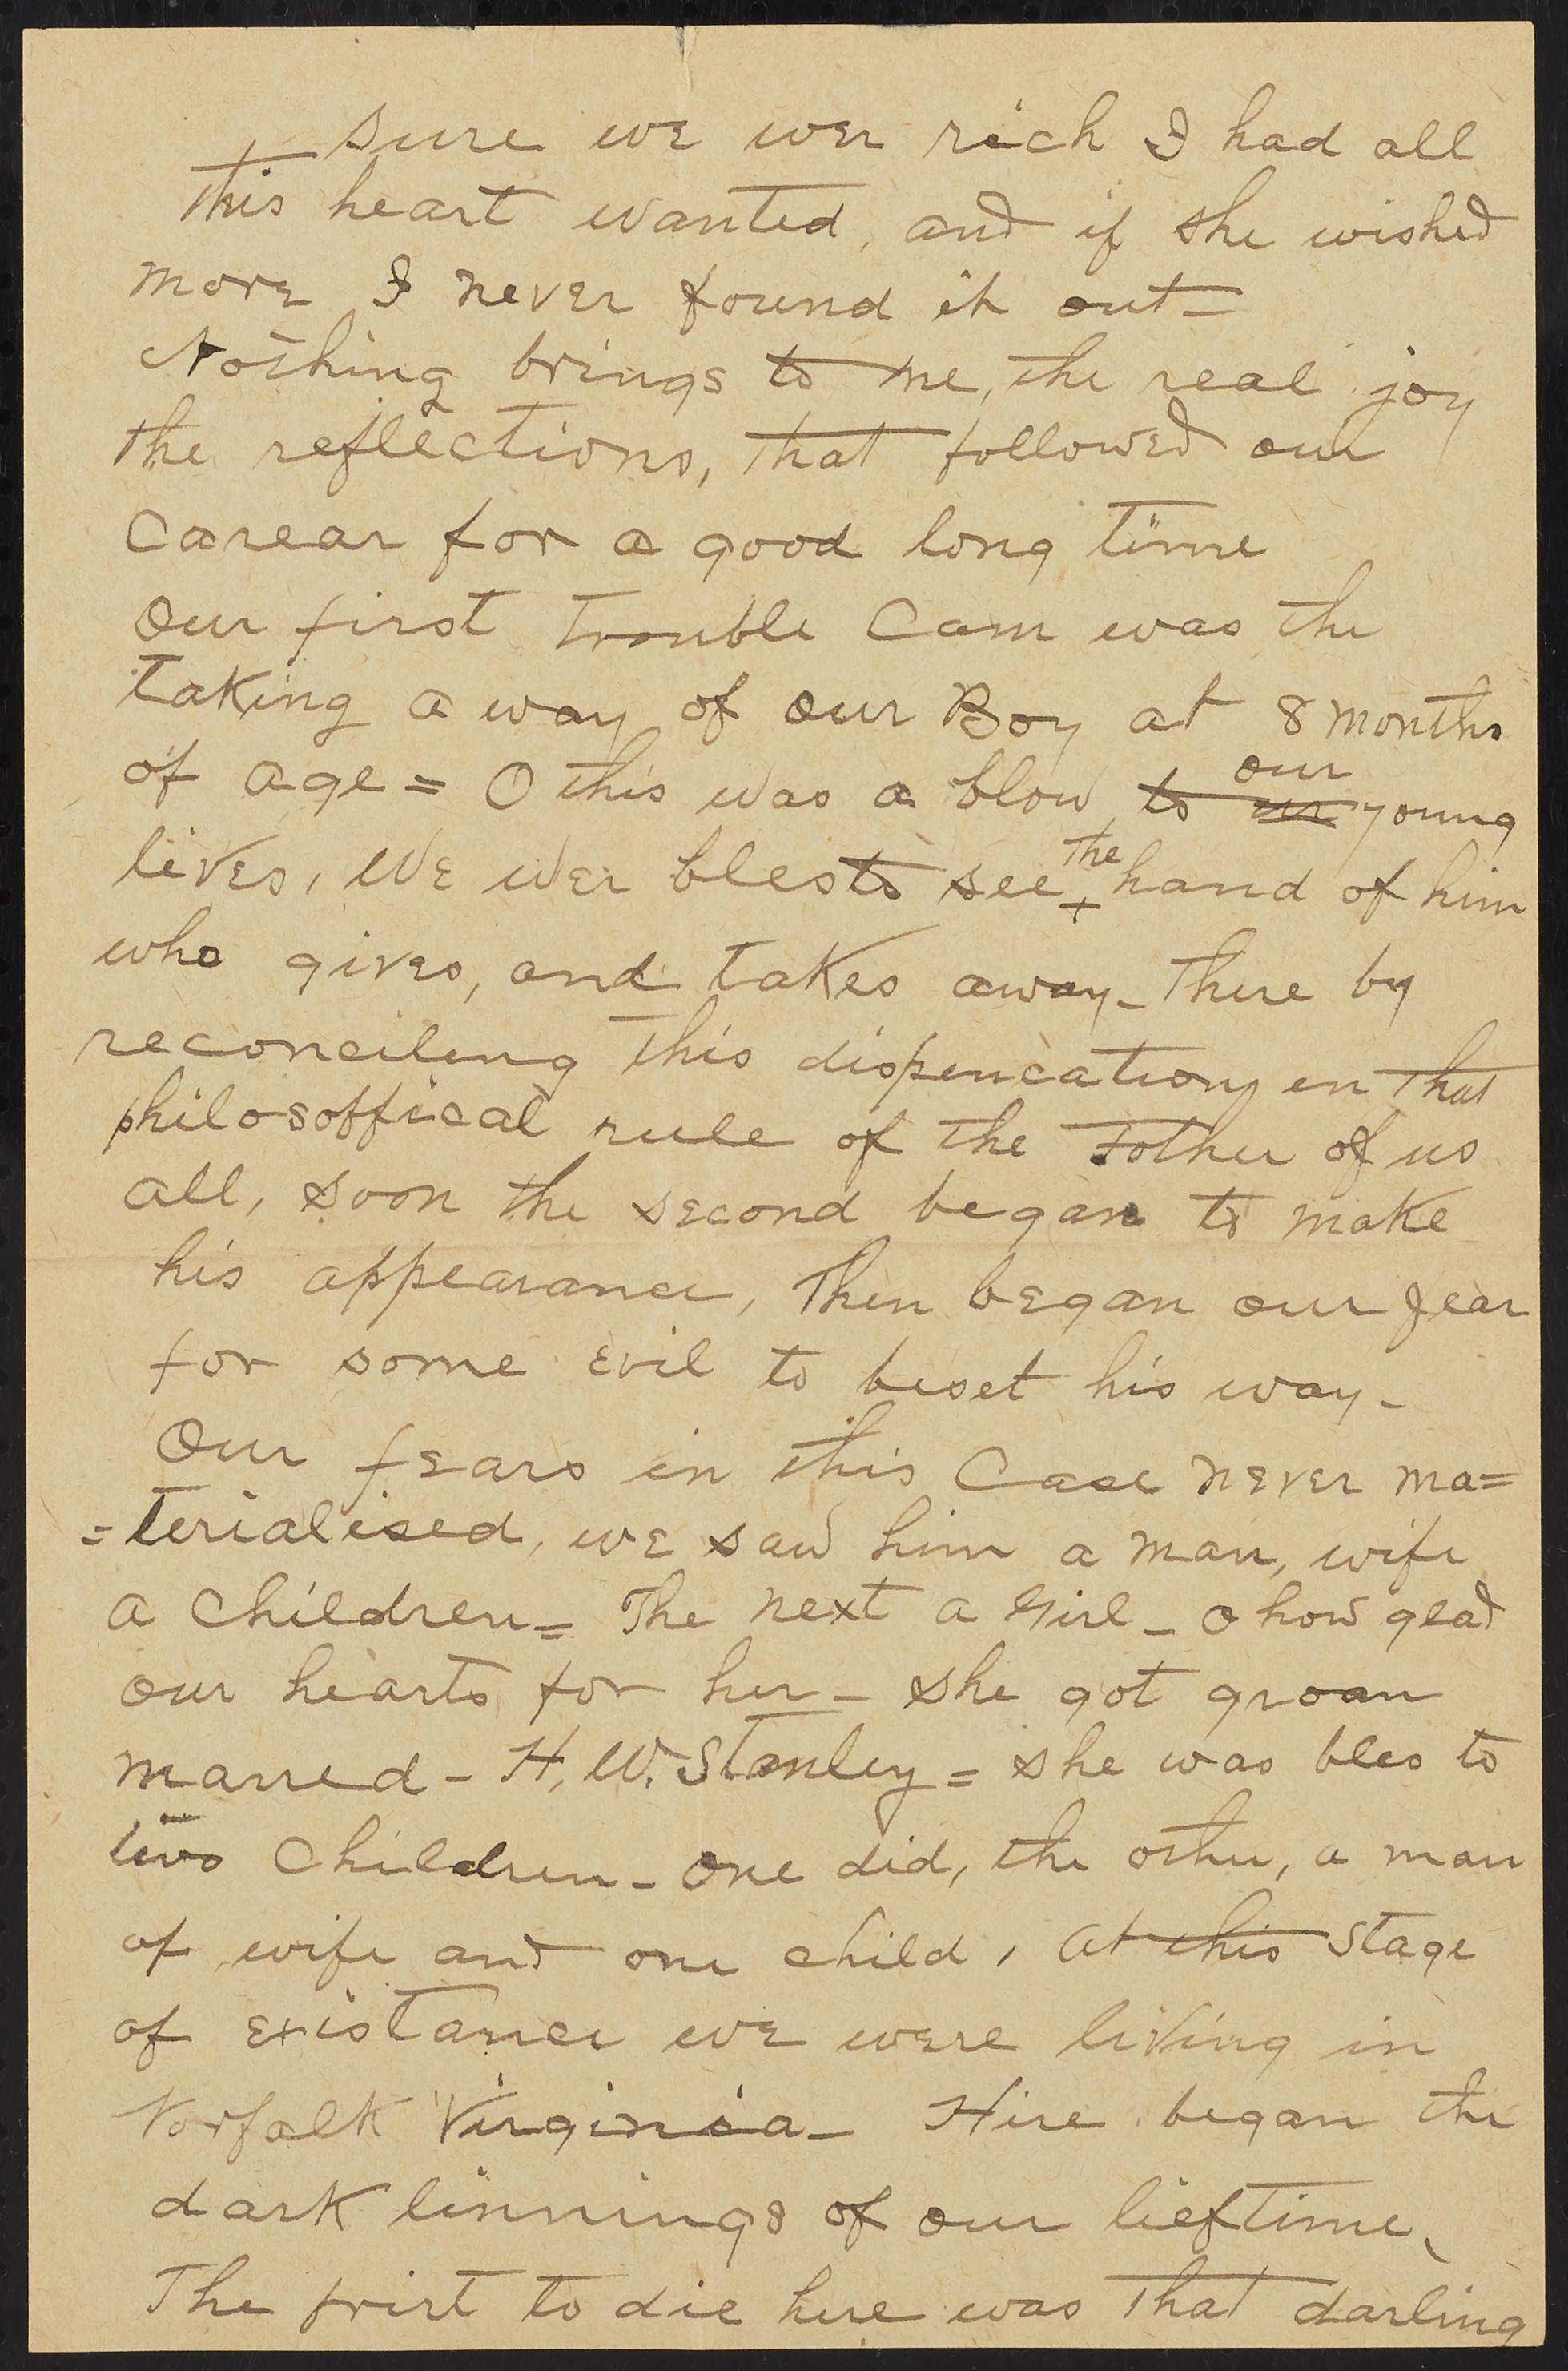 sure we wer rich I had all
this heart wanted, and if she wished
more I never found it out-
Nothing brings to me, the real joy
the reflections, that followed our
Carear for a good long time
Our first Trouble Cam was the
Taking a way of our Boy at 8 months
of age = O this was a blow to our young
lives, We wer blest to see the hand of him
who gives, and takes away- There by
reconciling this dispencation, in that
philosoffical rule of the Father of us
all, soon the second began to make
his appearance, Then began our fear
for some evil to beset his way-
Our fears in this Case never ma=
=terialised, we saw him a man, wife
a Children= The next a Girl- O how glad
our hearts for her- she got groan
marred- H. W. Stanley = she was bles to
two Children- One did, the other, a man
of wife and one child, At this stage
of existance we were living in
Norfolk Virginia- Hire began the
dark linnings of our lieftime,
The frirt to die here was that darling